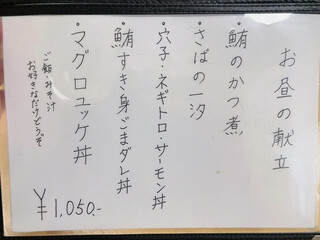 お昼の献立
・鮪のかつ煮
・さばの一汐
・穴子・ネギトロ・サーモン丼
・鮪すき身ごまダレ丼
・マグロユッケ丼
ご飯・みそ汁
お好きなだけどうぞ
¥1,050.-